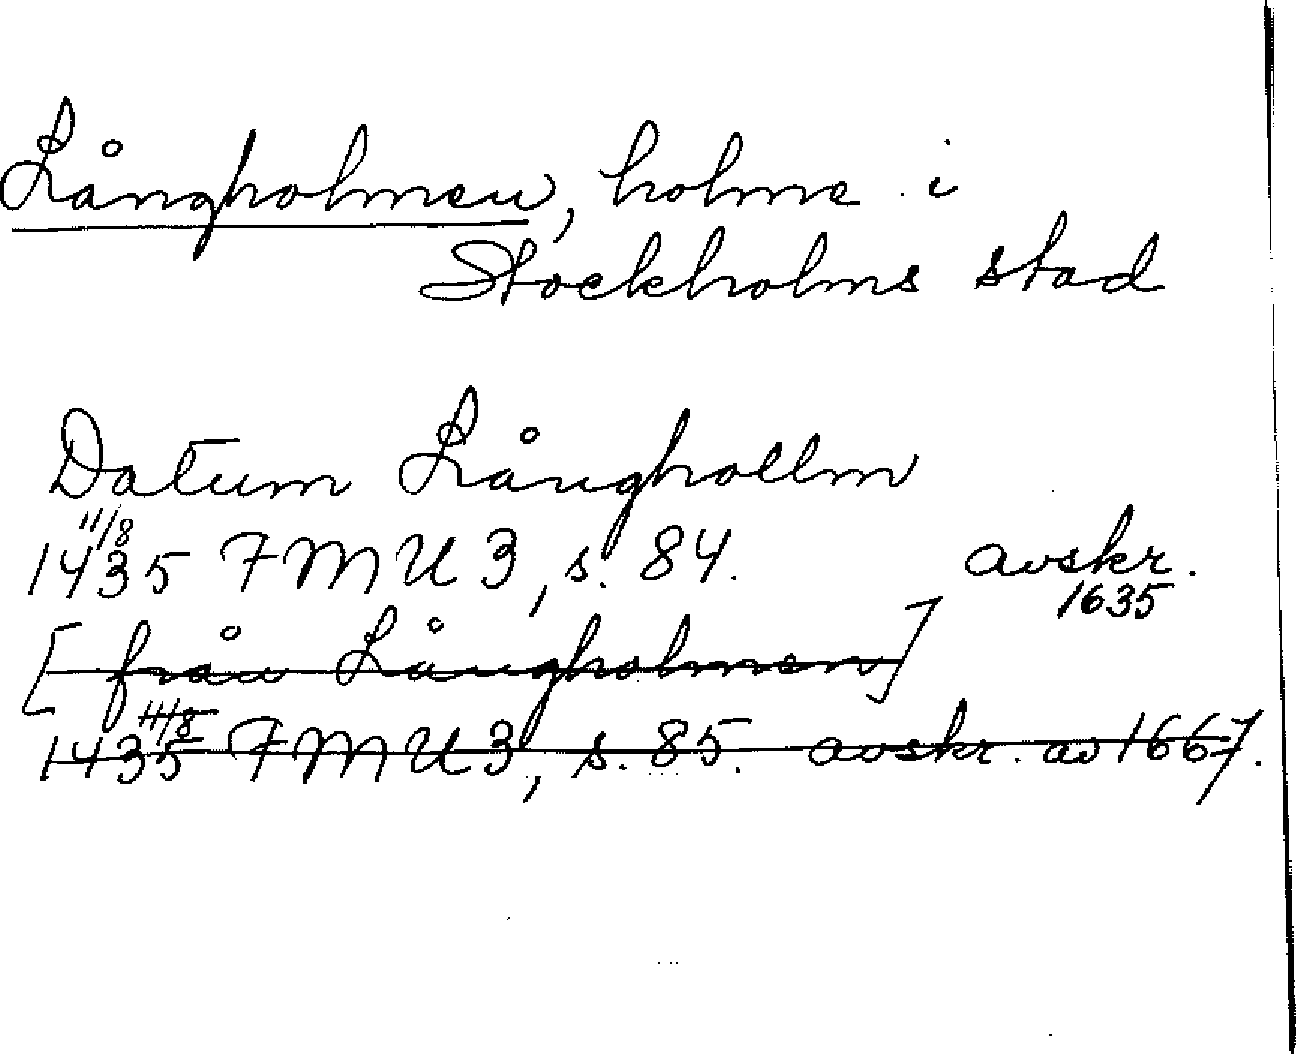 Långholmen, holme i
Stockholms stad
Datum Långhollm
11/8
1435 FMU 3, s. 84. avskr.
1635
[från Långholmen]
11/8
1435 FMU 3, s. 85. avskr. av 1667.